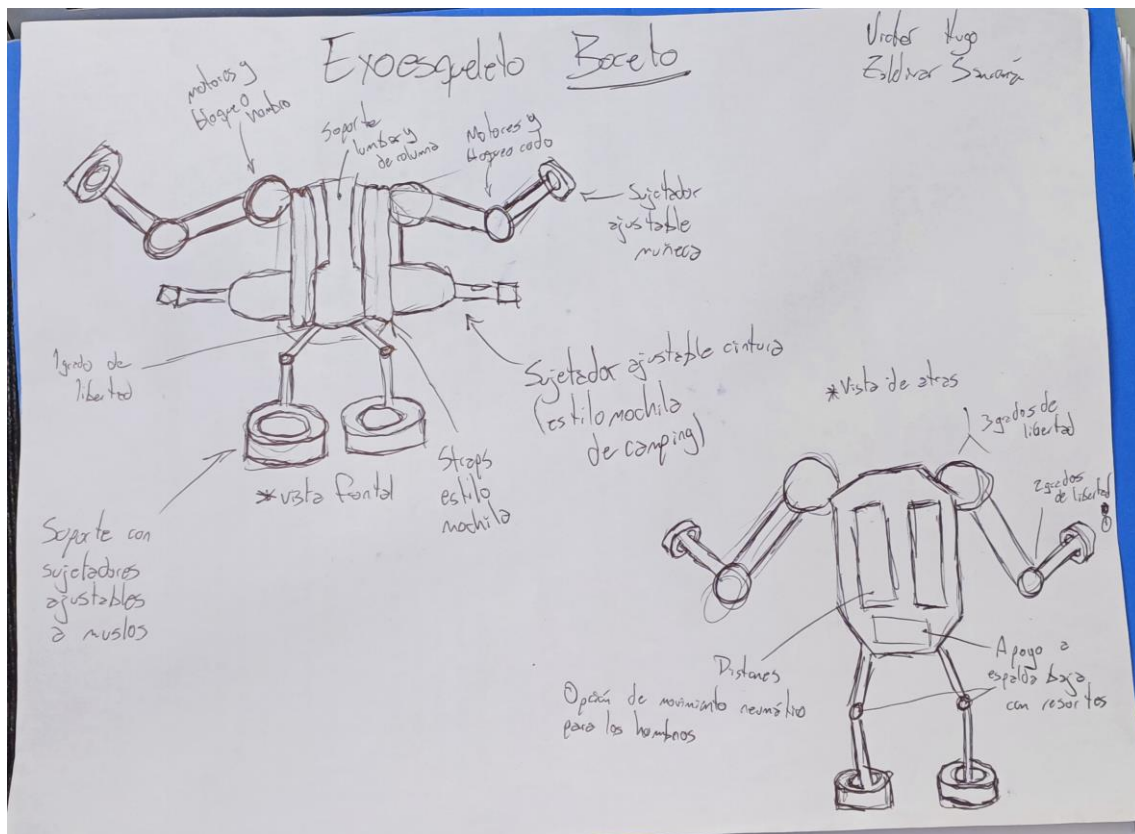 Exoesqueleto Boceto
Victor Hugo
Zaldivar
Motores y
bloqueo hombro
Soporte
lumbar y
de columna
Motores y
bloqueo codo
Sujetador
ajustable
muñeca
1 grado de
libertad
Sujetador ajustable cintura
(estilo mochila
de camping)
Straps
estilo
mochila
* vista frontal
Soporte con
sujetadores
ajustables
a muslos
* Vista de atras
3 grados de
libertad
2 grados
de libertad
Pistones
Opción de movimiento neumático
para los hombros
Apoyo a
espalda baja
con resortes